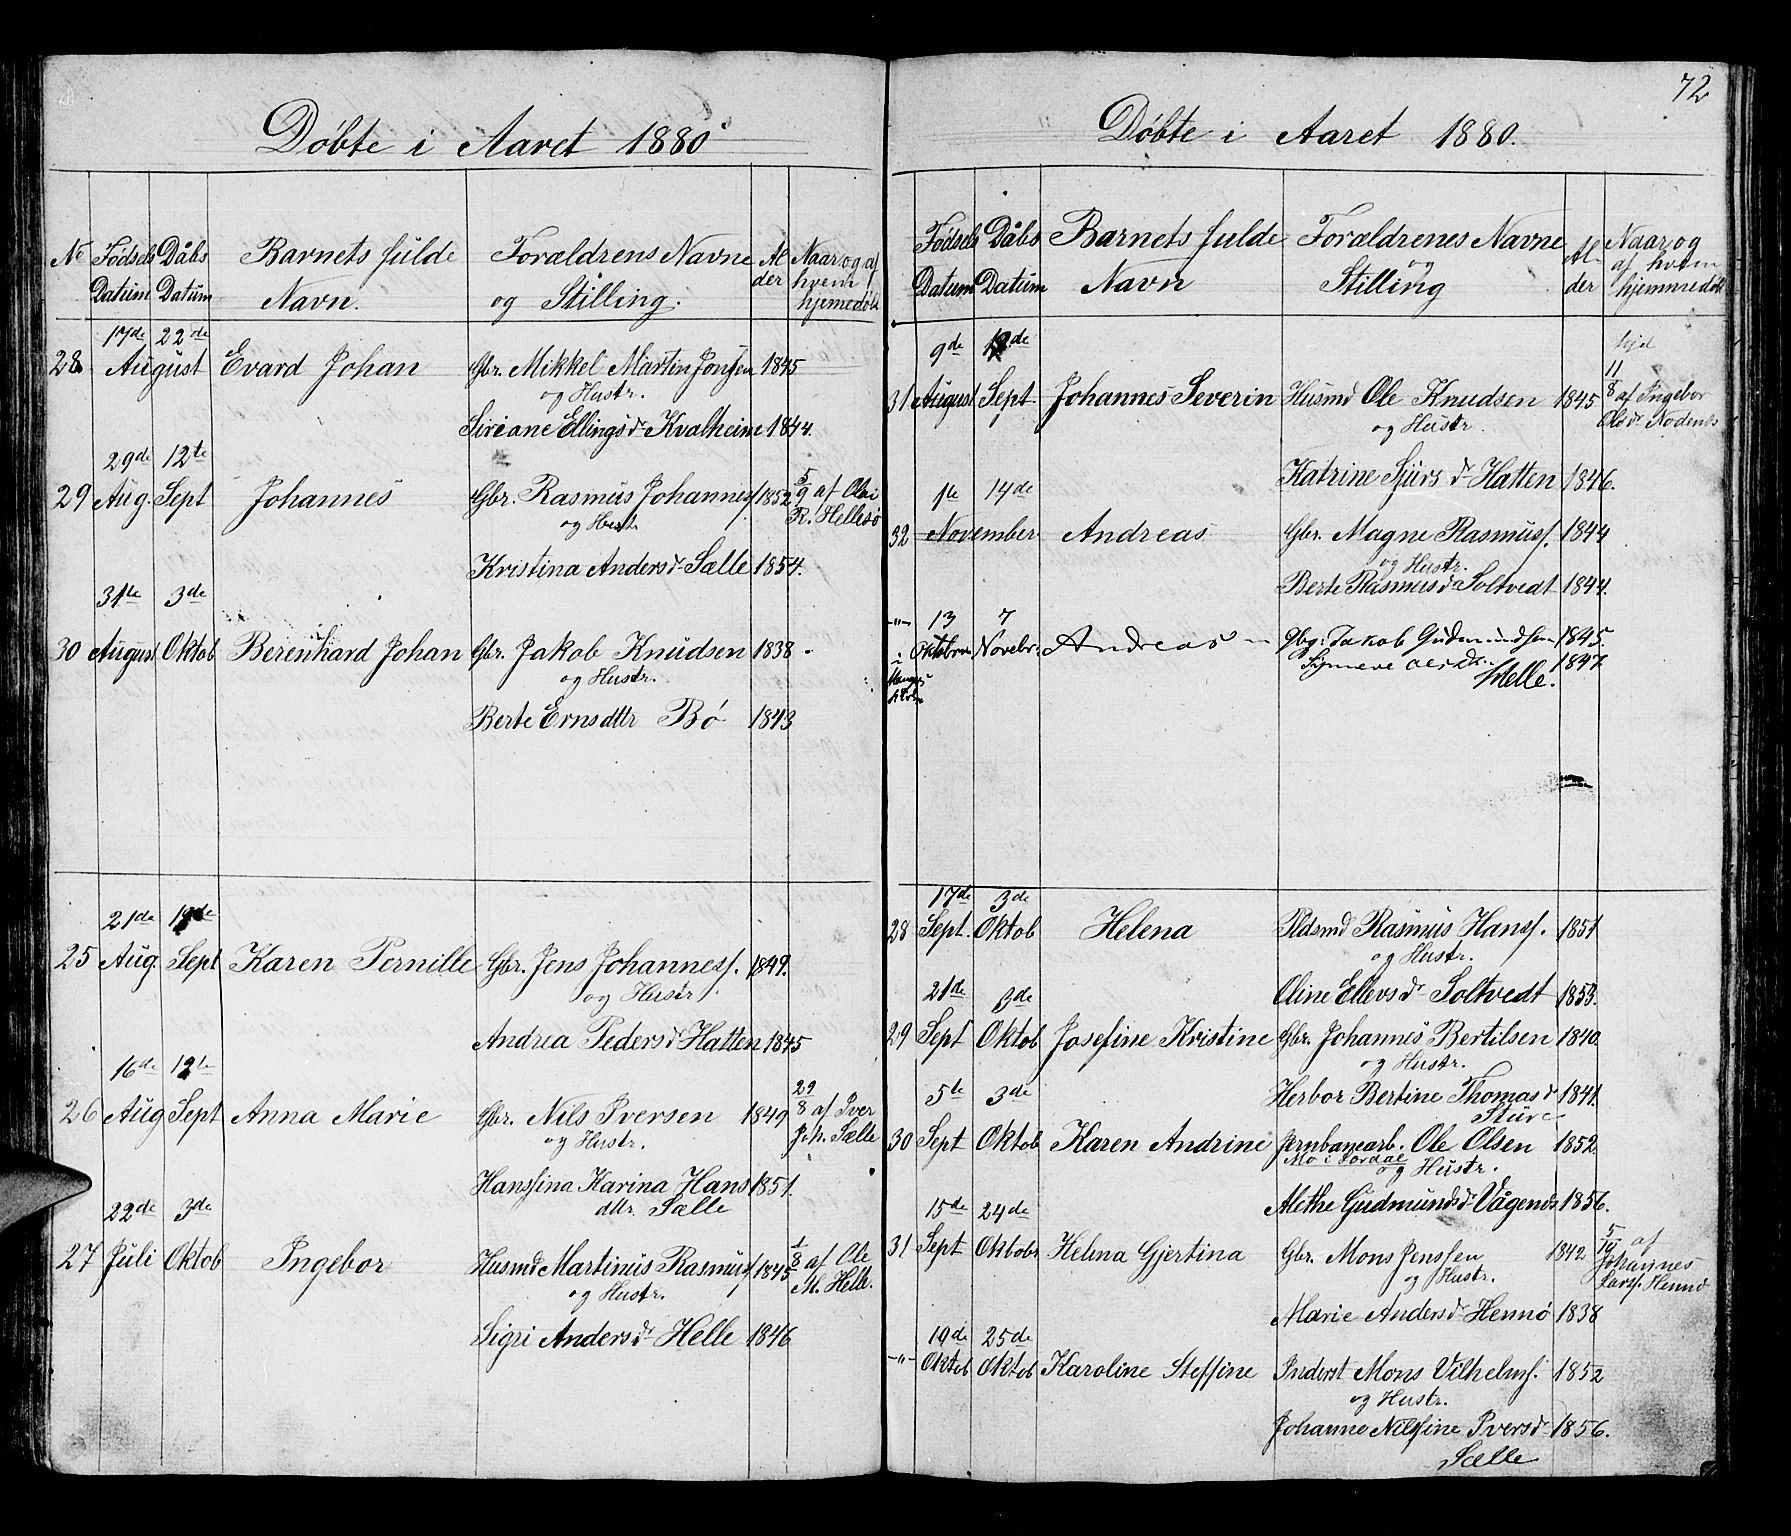 Döbte i Aaret 1880
No Fødsels Datum Dåbs Datum Barnets fulde Navn. Forældrens Navne og Stilling. Al der Naar og af hvem hjemedöbt
17de 22de
28 August Evard Johan Gbr. Mikkel Martin Jonsen 1845
og Hustr.
Siriane Ellingsdr Kvalheim 1844.
29de 12te
29 Aug. Sept Johannes Gbr. Rasmus Johannesf 1852 5/9 af Olai
og Hust. R. Hellesö
Kristina Andersdr Sælle 1854.
31te 3de
30 August Oktob Berenhard Johan Gbr. Jakob Knudsen 1838
og Hustr.
Berte Ernsdttr Bö 1843
21de
25 Aug. Sept Karen Pernille Gbr. Jens Johannesf. 1849.
og Hustr.
Andrea Pedersdr Hatten 1845
16de 12te
26 Aug Sept Anna Marie Gbr. Nils Iversen 1849 29/8 af Iver
og Hustr. Joh. Sælle
Hansfina Karina Hans 1851.
dttr. Sælle
22de 3de
27 Juli Oktob Ingebor Husmd Martinus Rasmusf 1845 1/8 af Ole
og Hustr. M. Helle.
Sigri Andersdr Helle 1846
72
Döbte i Aaret 1880.
Fødsels Datum Dåbs Datum Barnets fulde Navn Forældrenes Navne og Stilling Al der Naar og af hvem hjemmedöbt
9de
31 August Sept Johannes Severin Husmd Ole Knudsen 1845 11/8 af Ingebor
og Hustr. Olsdr Nødenes
Katrine Sjursdr Hatten 1846.
1te 14de
32 November Andreas Gbr. Magne Rasmusf. 1844
og Hustr.
Berte Rasmusdr Soltvedt 1844.
-"- 13 7
i Oktober Novebr. Andreas Gbg: Jakob Gudmundsen 1845.
1847
Helle.
17de 3de
28 Sept. Oktob Helena Pldsmd Rasmus Hansf. 1851
og Hustr.
Oline Ellevsdr Soltvedt 1853.
21de 3de
29 Sept Oktob Josefine Kristine Gbr. Johannes Bertilsen 1840.
og Hustr.
Herbor Bertine Thomasdr 1841.
Sture
5te 3de
30 Sept Oktob Karen Andrine Jernbanearb. Ole Olsen 1852.
Mo i og Hustr.
Alethe Gudmundsdr Vågenes 1856.
15de 24de
31 Sept Oktobr Helena Gjertina Gbr. Mons Jensfen 1842 5/10 af
og Hustr. Johannes
Larsf. Hennö
Marie Andersdr Hennö 1838
19de 25de
-"- Oktob Oktob Karoline Steffine Inderst Mons Vilhelmf. 1852
og Hustr.
Johanne Nilsfine Iversdr 1856.
Sælle